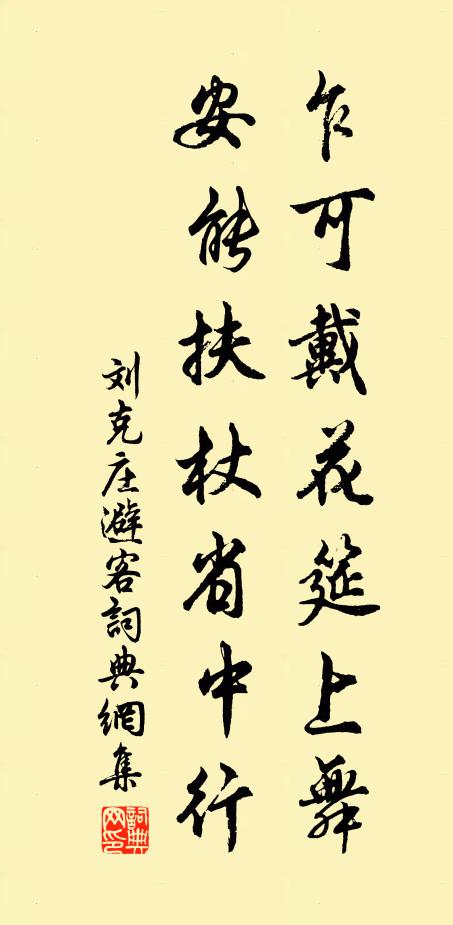 乍可戴花筵上舞
安能扶杖省中行
刘克庄避客詞典網集
詞典
网印